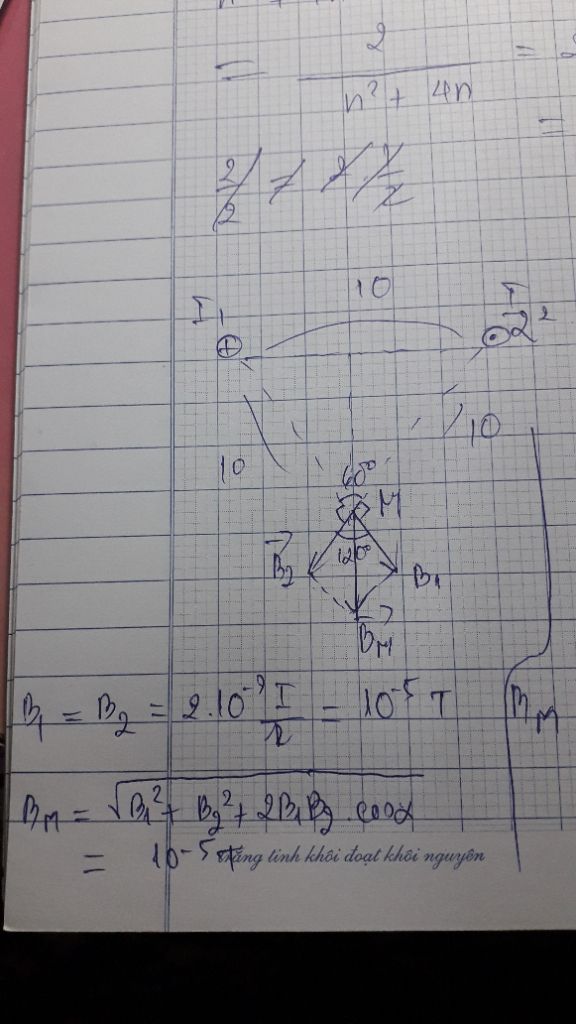 = 2 / n² + 4n =
=
2/2 = 2 · 1/2
10
I₁ ⊕ ⊙ I₂
10 10
60°
M
120°
B⃗₂ B₁
B⃗_M
B₁ = B₂ = 2.10⁻⁷ I/r = 10⁻⁵ T
B_M
B_M = √(B₁² + B₂² + 2B₁B₂ . cosα)
= 10⁻⁵ T
tinh khôi đoạt khôi nguyên